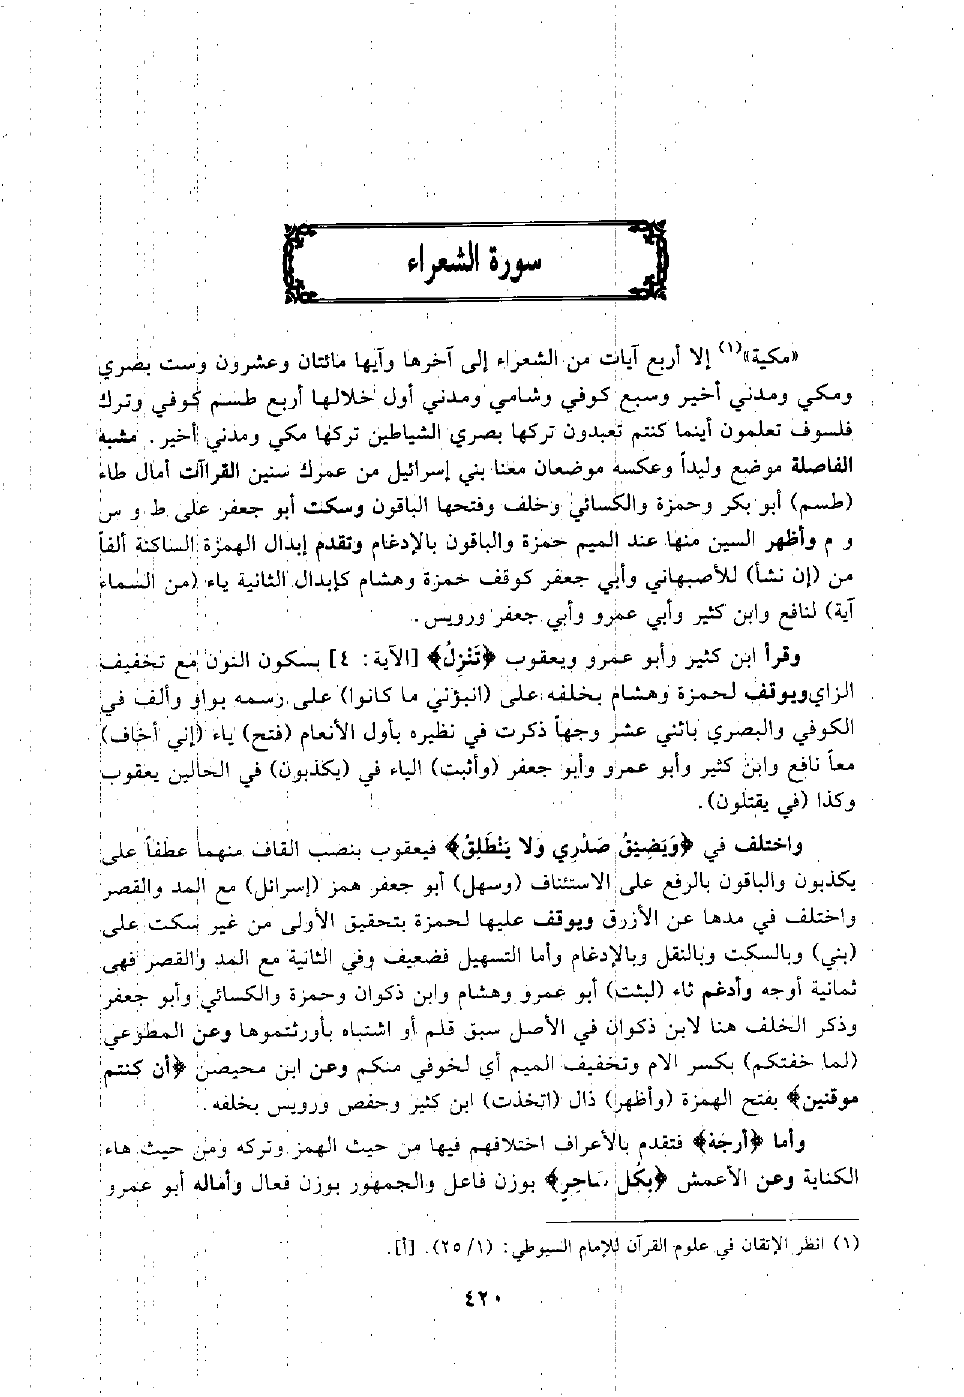 سورة الشعراء
«مكية»(١) إلا أربع آيات من الشعراء إلى آخرها وآيها مائتان وعشرون وست بصري
ومكي ومدني أخير وسبع كوفي وشامي ومدني أول خلالها أربع طسم كوفي وترك
فلسوف تعلمون أينما كنتم تعبدون تركها بصري الشياطين تركها مكي ومدني أخير. مشبه
الفاصلة موضع وليداً وعكسه موضعان معنا بني إسرائيل من عمرك سنين القراآت أمال طاء
(طسم) أبو بكر وحمزة والكسائي وخلف وفتحها الباقون وسكت أبو جعفر على ط و س
و م وأظهر السين منها عند الميم حمزة والباقون بالإدغام وتقدم إبدال الهمزة الساكنة ألفاً
من (إن نشأ) للأصبهاني وأبي جعفر كوقف حمزة وهشام كإبدال الثانية ياء (من السماء
آية) لنافع وابن كثير وأبي عمرو وأبي جعفر ورويس.
وقرأ ابن كثير وأبو عمرو ويعقوب ﴿تَنْزِلُ﴾ [الآية: ٤] بسكون النون مع تخفيف
الزاي ويوقف لحمزة وهشام بخلفه على (انبؤني ما كانوا) على رسمه بواو وألف في
الكوفي والبصري باثني عشر وجهاً ذكرت في نظيره بأول الأنعام (فتح) ياء (إني أخاف)
معاً نافع وابن كثير وأبو عمرو وأبو جعفر (وأثبت) الياء في (يكذبون) في الحالين يعقوب
وكذا (في يقتلون).
واختلف في ﴿وَيَضِيقُ صَدْرِي وَلا يَنْطَلِقُ﴾ فيعقوب بنصب القاف منهما عطفاً على
يكذبون والباقون بالرفع على الاستئناف (وسهل) أبو جعفر همز (إسرائل) مع المد والقصر
واختلف في مدها عن الأزرق ويوقف عليها لحمزة بتحقيق الأولى من غير سكت على
(بني) وبالسكت وبالنقل وبالإدغام وأما التسهيل فضعيف وفي الثانية مع المد والقصر فهى
ثمانية أوجه وأدغم ثاء (لبثت) أبو عمرو وهشام وابن ذكوان وحمزة والكسائي وأبو جعفر
وذكر الخلف هنا لابن ذكوان في الأصل سبق قلم أو اشتباه بأورثتموها وعن المطوعي
(لما خفتكم) بكسر الام وتخفيف الميم أي لخوفي منكم وعن ابن محيصن ﴿أن كنتم
موقنين﴾ بفتح الهمزة (وأظهر) ذال (اتخذت) ابن كثير وحفص ورويس بخلفه.
وأما ﴿أرجة﴾ فتقدم بالأعراف اختلافهم فيها من حيث الهمز وتركه ومن حيث هاء
الكناية وعن الأعمش ﴿بِكُل سَاحِرٍ﴾ بوزن فاعل والجمهور بوزن فعال وأماله أبو عمرو
(١) انظر الإتقان في علوم القرآن للإمام السيوطي: (٢٥/١). [أ].
٤٢٠